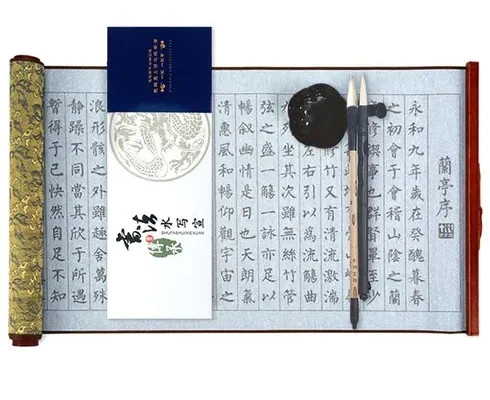 蘭亭序
永和九年歲在癸醜暮春
之初會于會稽山陰之蘭
修禊事也群賢畢至
修竹又有清流激湍
左右引以為流觴曲
坐其次雖無絲竹管
弦之盛一觴一詠亦足以
暢敘幽情是日也天朗氣
清惠風和暢仰觀宇宙之
書法
水写宣
SHUFASHUIXIEXUAN
浪形骸之外雖趣舍萬殊
靜躁不同當其欣於所遇
暫得于己快然自足不知